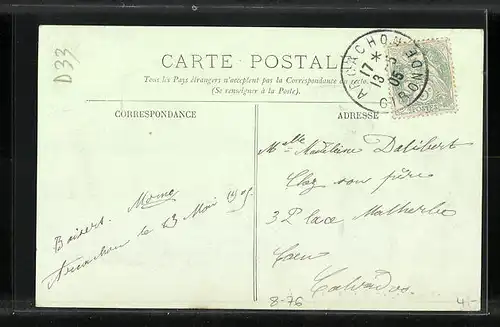 D33
CARTE POSTALE
Tous les Pays étrangers n'acceptent pas la Correspondance au recto.
(Se renseigner à la Poste).
ARCACHON
17 *
13 -5
05
GIRONDE
CORRESPONDANCE
ADRESSE
Baisers. Momo
Arcachon le 13 Mai 1905
Melle Madeleine Dalibert
Chez son père
3 Place Malherbe
Caen
Calvados.
8-76
4.-